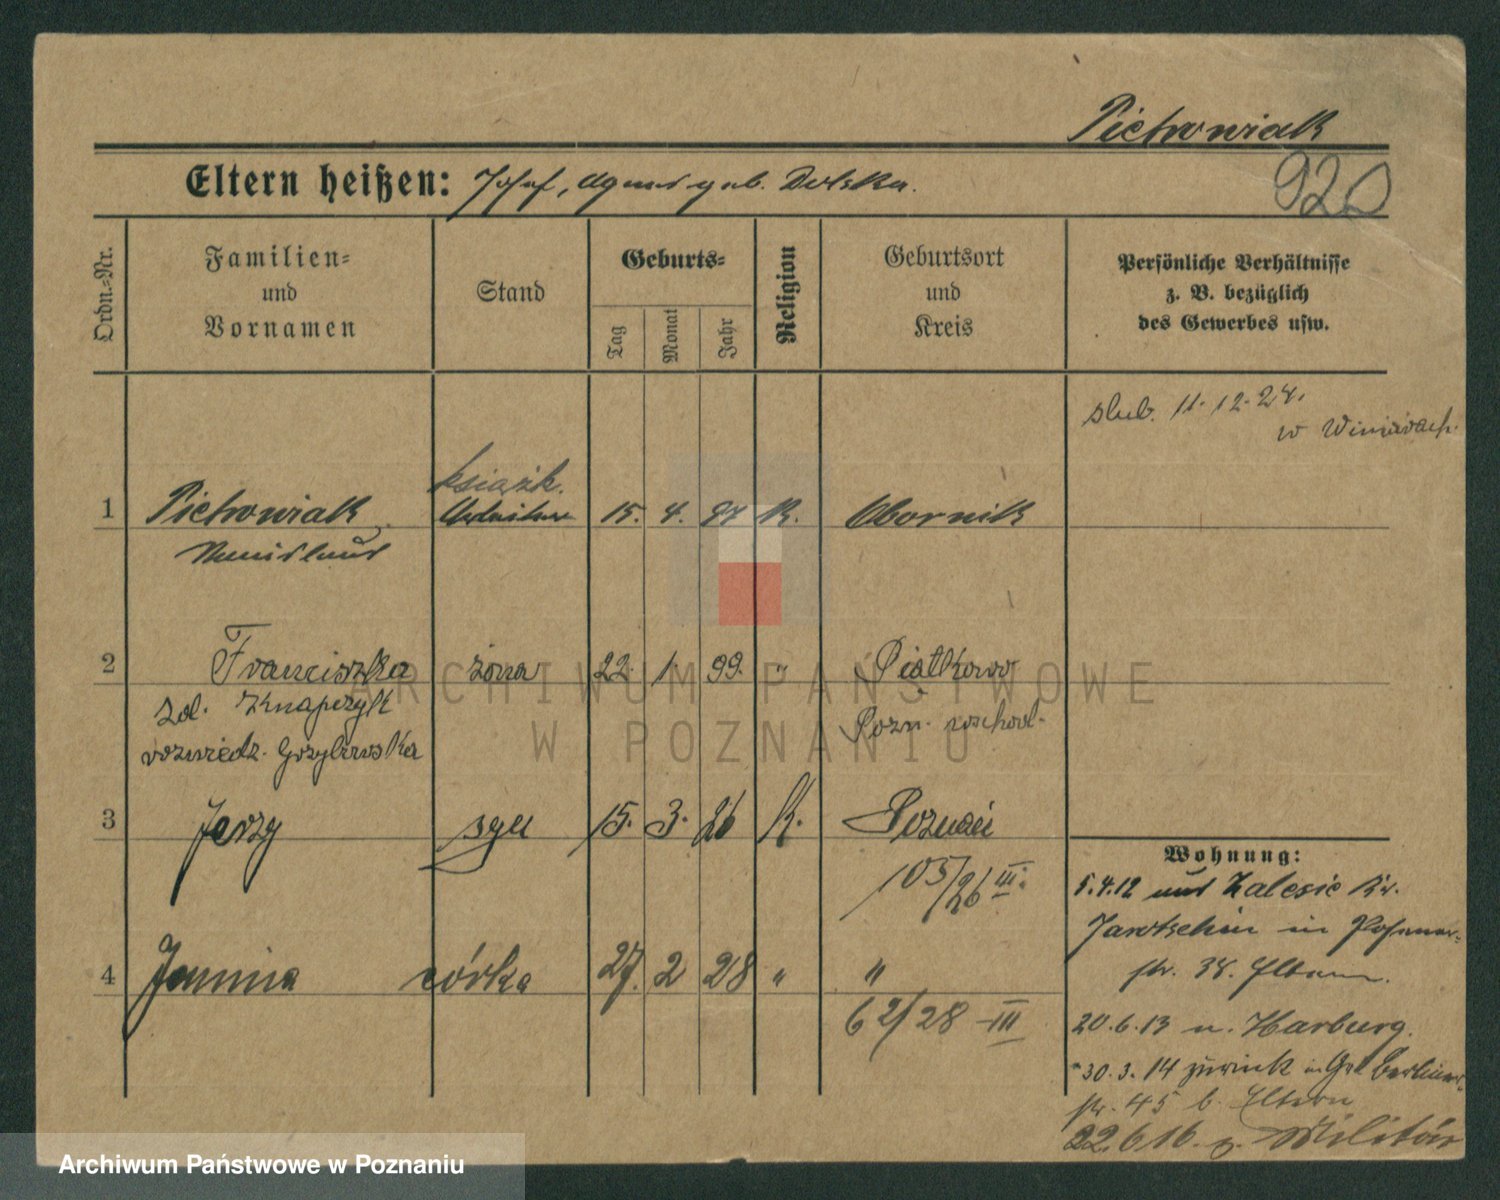 Pietrowiak
920
Eltern heißen: Josef, Agnes geb. Dolska.
Ordn.-Nr.
Familien- und Vornamen
Stand
Geburts-
Tag
Monat
Jahr
Religion
Geburtsort und Kreis
Persönliche Verhältnisse z. B. bezüglich des Gewerbes usw.
slub. 11.12.24.
w Winiarach.
książk.
1 Pietrowiak 15. 4. 97 K. Obornik
2 Franciszka żona 22. 1. 99. " Piątkowo
zd. Knapczyk Pozn. wschod.
rozwiedz. Grzybowska
3 Jerzy syn 15. 3. 26 K. Poznań
105/26 III.
4 Janina córka 27. 2 28 " "
62/28 III
Wohnung:
5.4.12 aus Zalesie Kr.
Jarotschin in Posener-
str. 38. Eltern.
20.6.13 n. Harburg.
30.3.14 zurück in Gr. Berliner-
str. 45 b. Eltern
22.6.16. z. Militär
ARCHIWUM PAŃSTWOWE
W POZNANIU
Archiwum Państwowe w Poznaniu